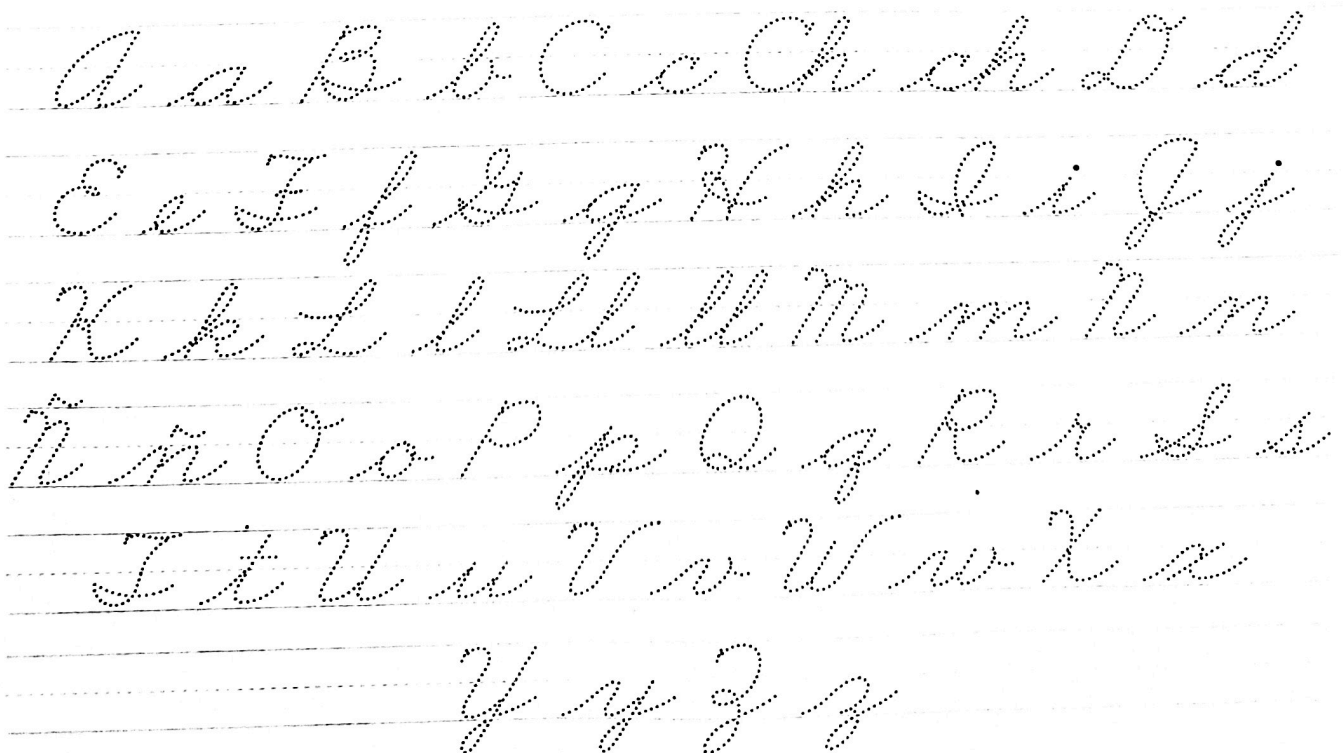 A a B b C c Ch ch D d
E e F f G g H h I i J j
K k L l Ll ll M m N n
Ñ ñ O o P p Q q R r S s
T t U u V v W w X x
Y y Z z